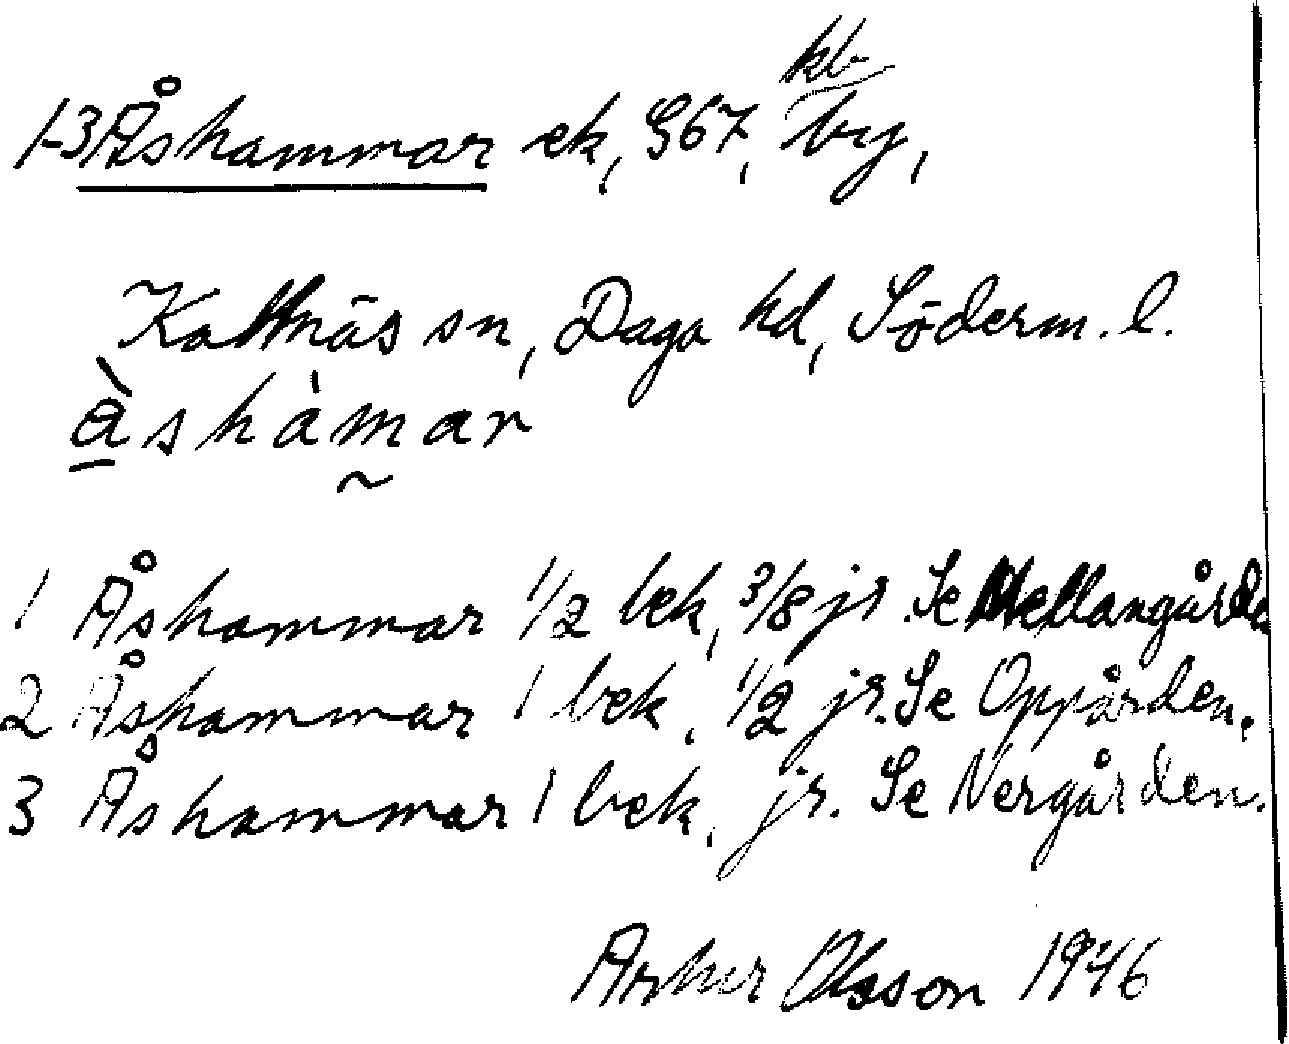 kb
1-3 Åshammar ek, G67, by,
Kattnäs sn, Daga hd, Söderm. l.
å̀shàmar
1 Åshammar 1/2 bek, 3/8 jr. Se Mellangården
2 Åshammar 1 bek, 1/2 jr. Se Oppgården.
3 Åshammar 1 bek, jr. Se Nergården.
Arthur Olsson 1946